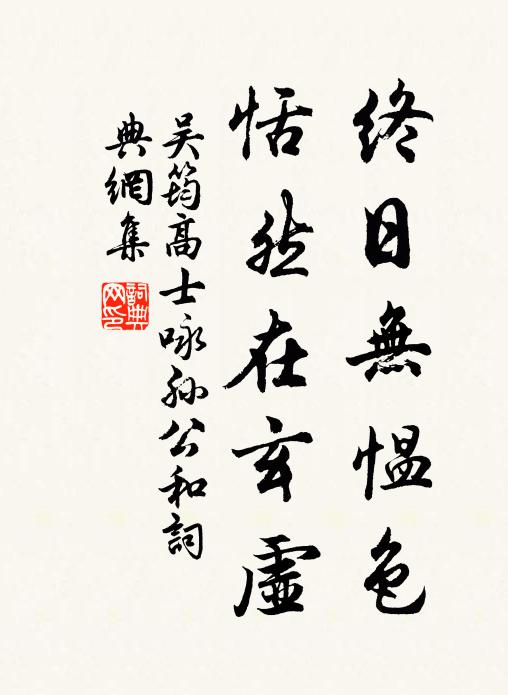 終日無愠色
恬然在玄虛
吴筠高士咏孫公和詞
典網集
詞典網印